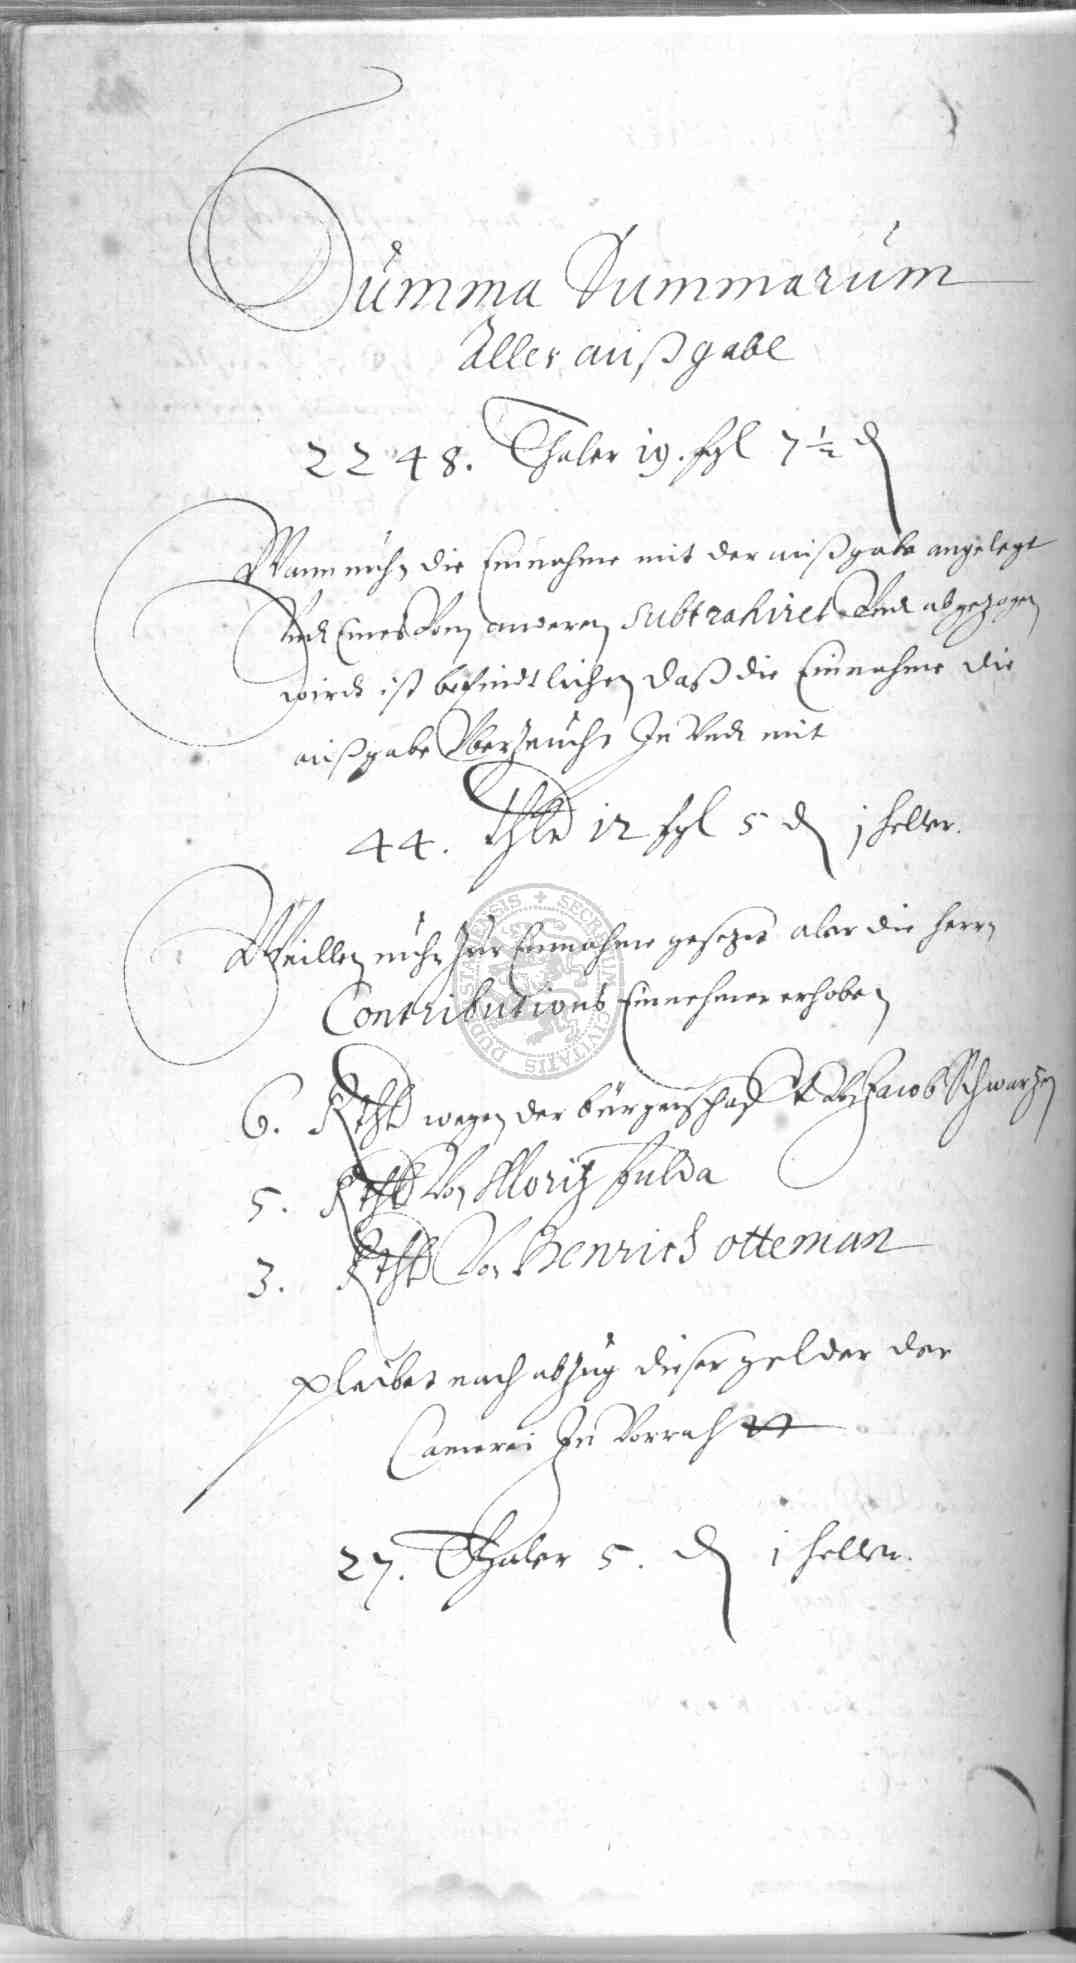 Summa Summarum
Aller außgabe
2248. Thaler 19. fgl 7½ ₰
Wann nuhn die Einnahme mit der außgabe angelegt
Undt Eines Von anderen subtrahiret Undt abgezogen
wirdt ist befindtlichen daß die Einnahme die
außgabe Vbersteücht In Undt mit
44. thlr 12 fgl 5 ₰ 1 heller.
Weillen nuhn Zur Einnahme gesezet aber die herrn
Contributions Einnehmer erhoben
6. Rthlr wegen der bürgerschafft Von Jacob Schwarzen
5. Rthlr Von Moritz fulda
3. Rthlr Von Henrich otteman
pleibet nach abzug dieser gelder der
Camerei In Vorrath
27. Thaler 5. ₰ 1 heller.
SECRETUM CIVITATIS DUDERSTATENSIS